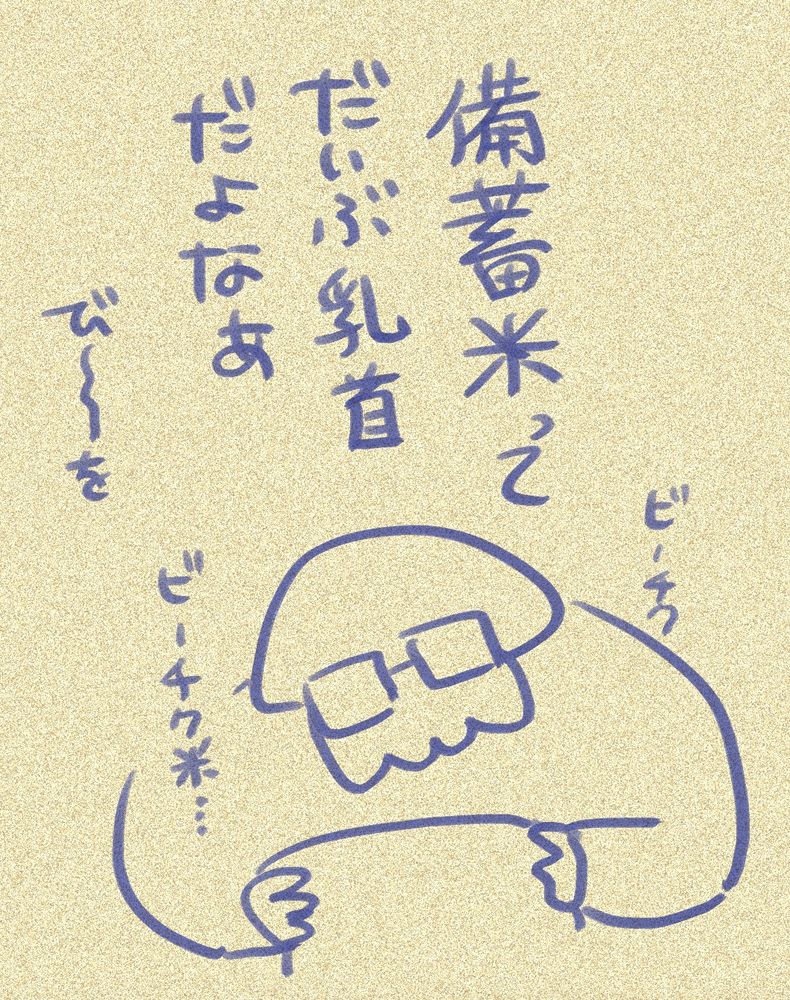 備蓄米って
だいぶ乳首
だよなあ
び〜〜を
ビーチク
ビーチク米…